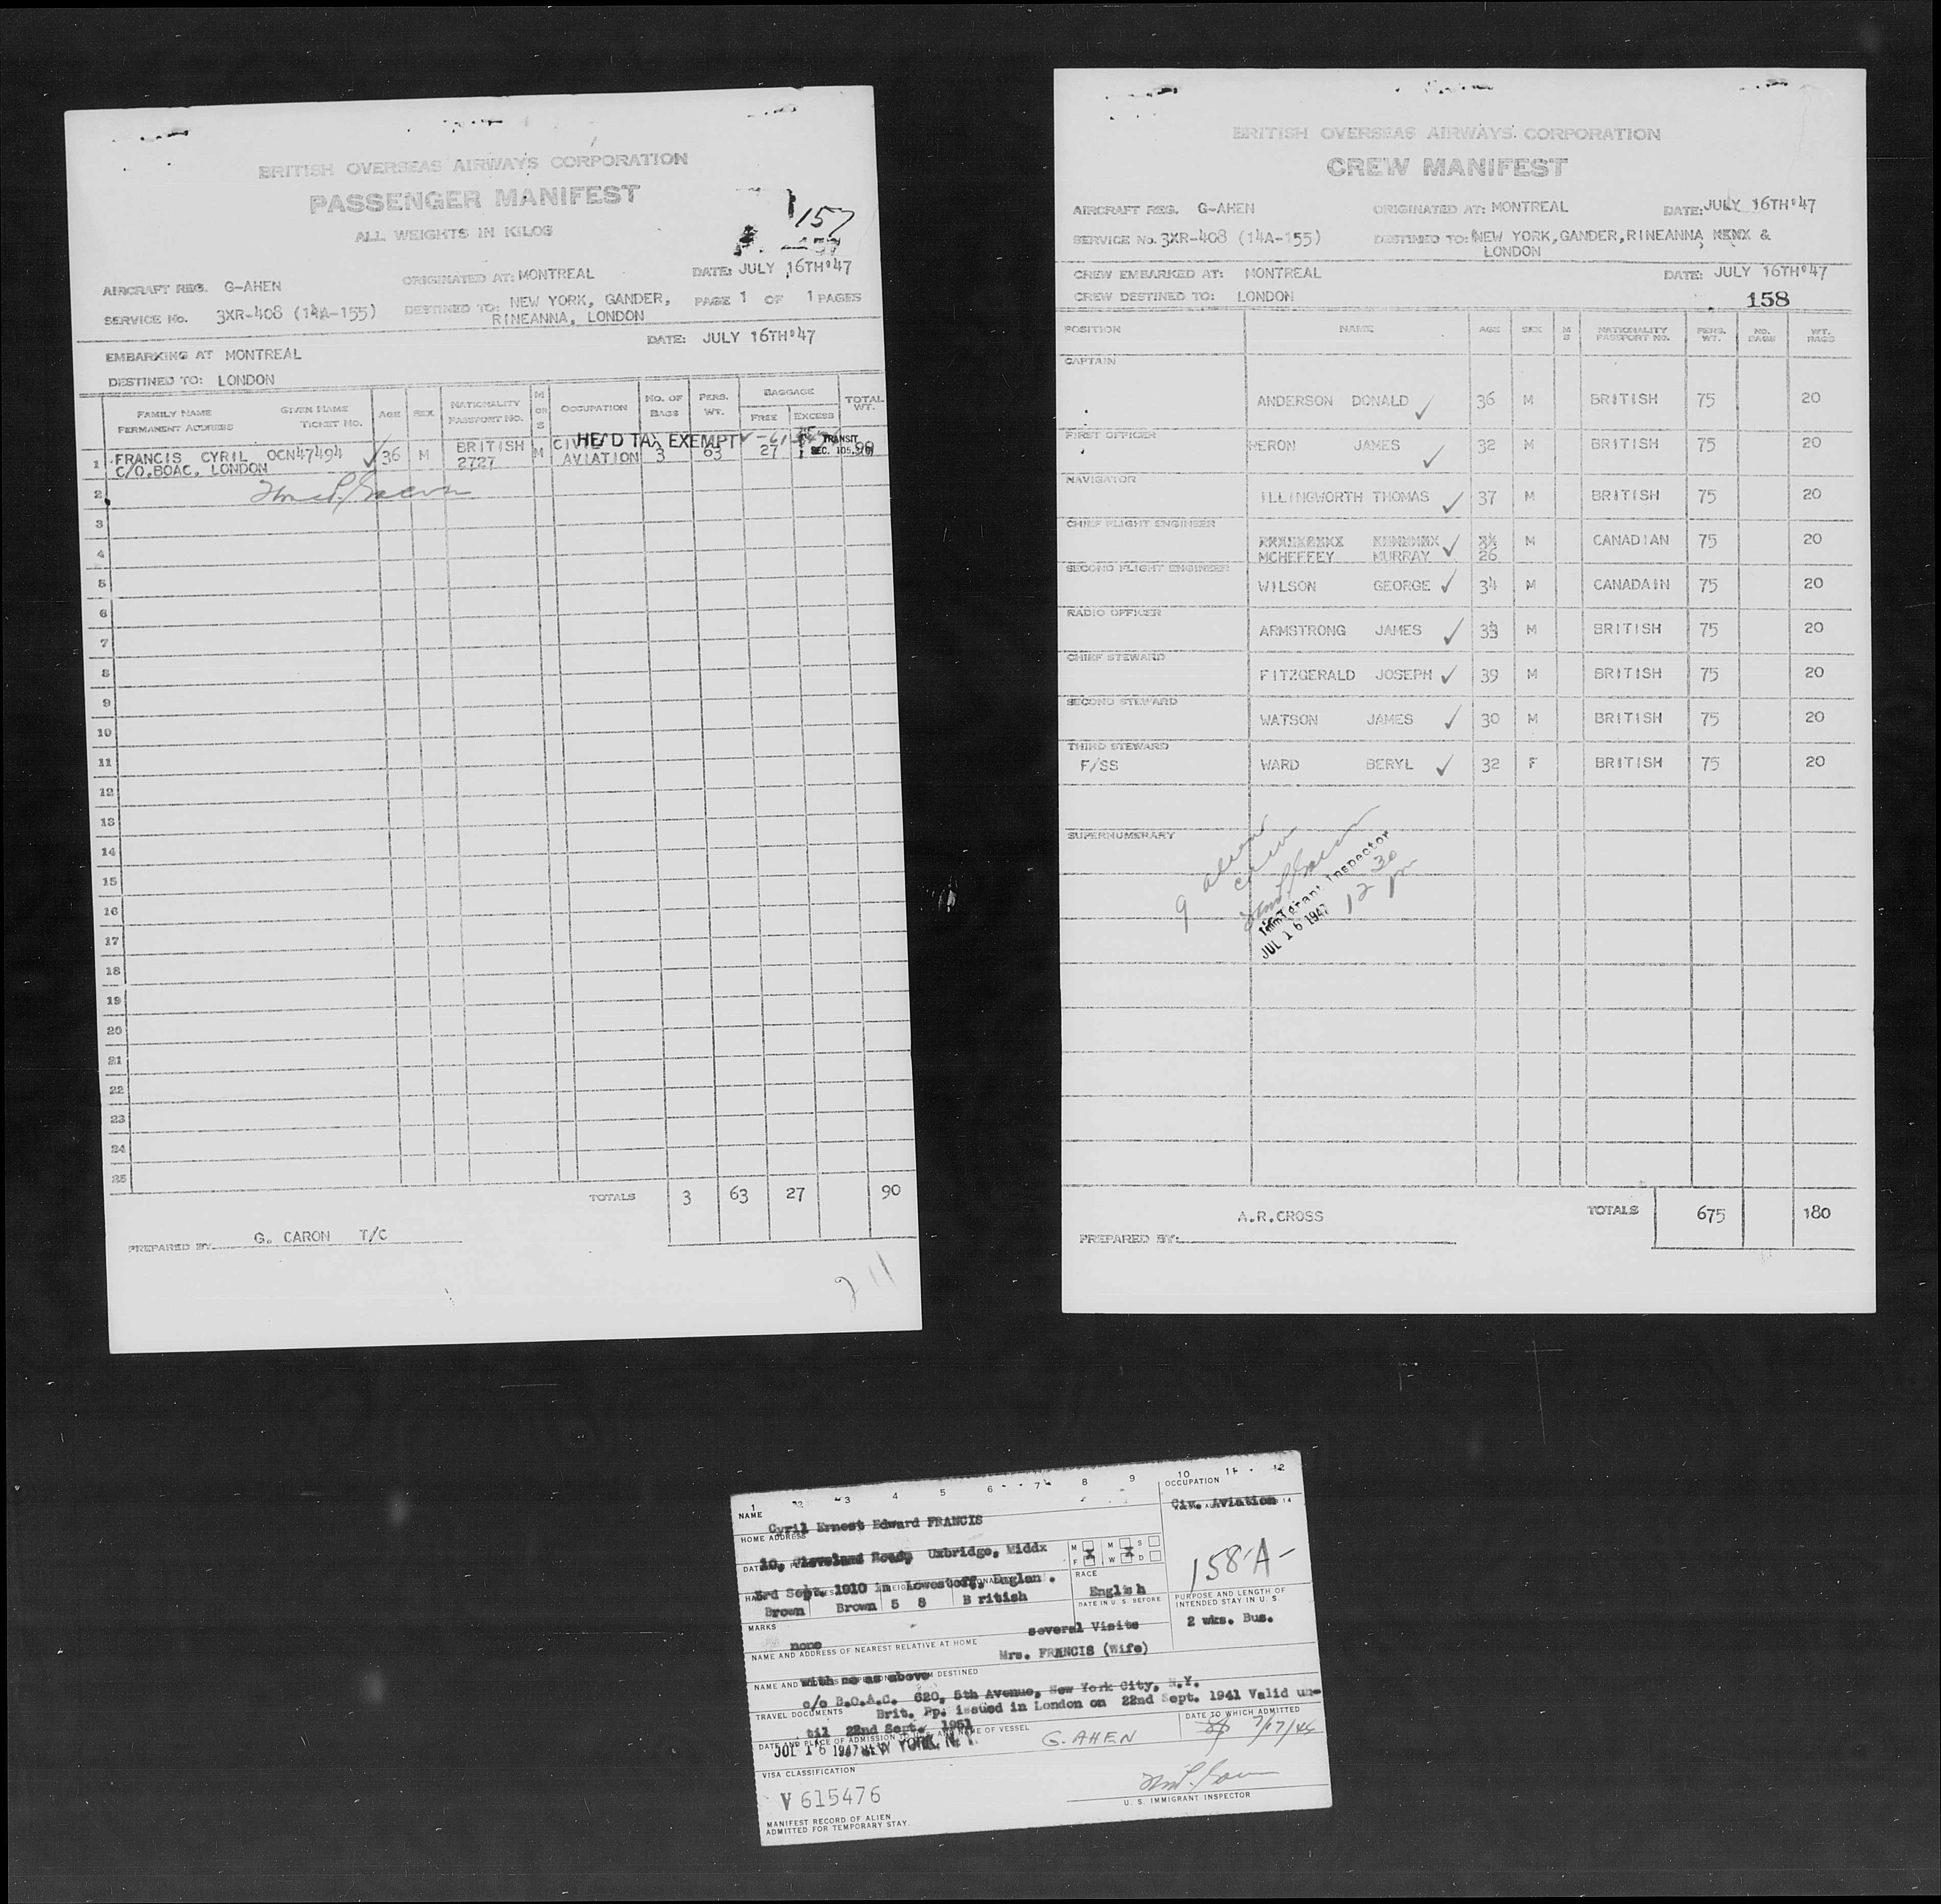 BRITISH OVERSEAS AIRWAYS CORPORATION
PASSENGER MANIFEST
ALL WEIGHTS IN KILOS
157
AIRCRAFT REG. G-AHEN ORIGINATED AT: MONTREAL DATE: JULY 16TH°47
SERVICE No. 3XR-408 (14A-155) DESTINED TO: NEW YORK, GANDER, PAGE 1 OF 1 PAGES
RINEANNA, LONDON
EMBARKING AT MONTREAL DATE: JULY 16TH°47
DESTINED TO: LONDON
FAMILY NAME GIVEN NAME AGE SEX NATIONALITY M OR S OCCUPATION NO. OF BAGS PERS. WT. BAGGAGE TOTAL WT.
PERMANENT ADDRESS TICKET NO. PASSPORT NO. FREE EXCESS
HEAD TAX EXEMPT TRANSIT
1 FRANCIS CYRIL OCN47494 ✓ 36 M BRITISH M CIVIL 3 63 27 90
C/O.BOAC. LONDON 2727 AVIATION SEC. 105.3(6)
2
3
4
5
6
7
8
9
10
11
12
13
14
15
16
17
18
19
20
21
22
23
24
25
TOTALS 3 63 27 90
PREPARED BY G. CARON T/C
2 11
BRITISH OVERSEAS AIRWAYS CORPORATION
CREW MANIFEST
AIRCRAFT REG. G-AHEN ORIGINATED AT: MONTREAL DATE: JULY 16TH°47
SERVICE No. 3XR-408 (14A-155) DESTINED TO: NEW YORK, GANDER, RINEANNA, &
LONDON
CREW EMBARKED AT: MONTREAL DATE: JULY 16TH°47
CREW DESTINED TO: LONDON 158
POSITION NAME AGE SEX M S NATIONALITY PASSPORT NO. PERS. WT. NO. BAGS WT. BAGS
CAPTAIN
ANDERSON DONALD ✓ 36 M BRITISH 75 20
FIRST OFFICER
HERON JAMES ✓ 32 M BRITISH 75 20
NAVIGATOR
ILLINGWORTH THOMAS ✓ 37 M BRITISH 75 20
CHIEF FLIGHT ENGINEER
✓ M CANADIAN 75 20
MCHEFFEY MURRAY 26
SECOND FLIGHT ENGINEER
WILSON GEORGE ✓ 34 M CANADAIN 75 20
RADIO OFFICER
ARMSTRONG JAMES ✓ 33 M BRITISH 75 20
CHIEF STEWARD
FITZGERALD JOSEPH ✓ 39 M BRITISH 75 20
SECOND STEWARD
WATSON JAMES ✓ 30 M BRITISH 75 20
THIRD STEWARD
F/SS WARD BERYL ✓ 32 F BRITISH 75 20
SUPERNUMERARY
9 alien crew
Immigrant Inspector
JUL 16 1947
12 30 pm
TOTALS 675 180
A.R.CROSS
PREPARED BY:
1 2 3 4 5 6 7 8 9 10 11 12
NAME OCCUPATION
Cyril Ernest Edward FRANCIS Civ. Aviation 14
HOME ADDRESS
10, Cleveland Road, Uxbridge, Middx M F X M S W D X
158-A-
3rd Sept. 1910 in Lowestoft, England. RACE
English
Brown Brown 5 8 British DATE IN U. S. BEFORE PURPOSE AND LENGTH OF INTENDED STAY IN U. S.
MARKS
none several Visits 2 wks. Bus.
NAME AND ADDRESS OF NEAREST RELATIVE AT HOME Mrs. FRANCIS (Wife)
with me as above
c/o B.O.A.C. 620, 5th Avenue, New York City, N.Y.
TRAVEL DOCUMENTS Brit. Pp. issued in London on 22nd Sept. 1941 Valid un-
til 22nd Sept. 1951
DATE AND PLACE OF ADMISSION TO U.S. AND NAME OF VESSEL DATE TO WHICH ADMITTED
JUL 16 1947 NEW YORK, N. Y. G. AHEN
VISA CLASSIFICATION
V 615476
U. S. IMMIGRANT INSPECTOR
MANIFEST RECORD OF ALIEN
ADMITTED FOR TEMPORARY STAY.